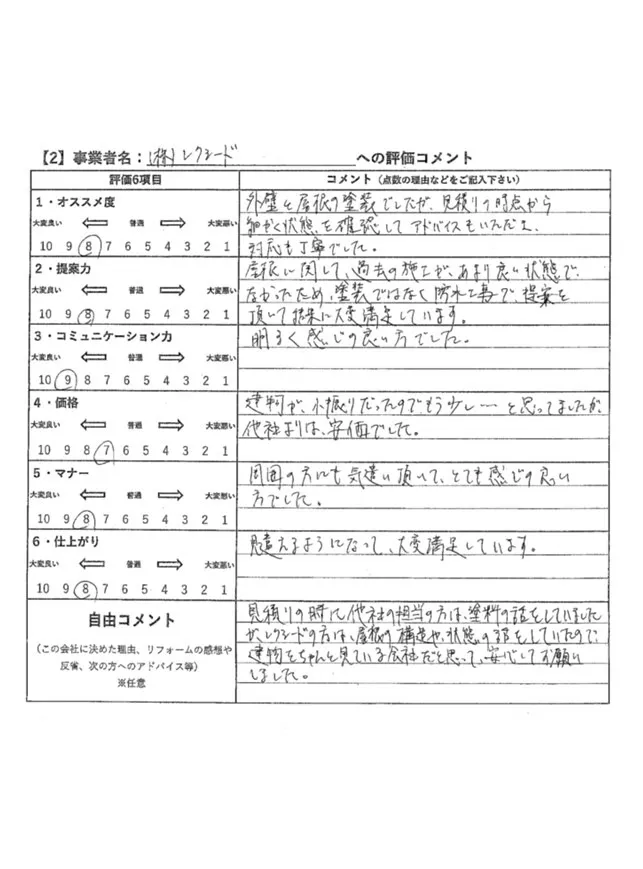 【2】事業者名：(株)レクシード への評価コメント
評価6項目 コメント（点数の理由などをご記入下さい）
1・オススメ度
大変良い 普通 大変悪い
10 9 8 7 6 5 4 3 2 1
外壁と屋根の塗装でしたが、見積りの時点から
細かく状態を確認してアドバイスもいただき、
対応も丁寧でした。
2・提案力
大変良い 普通 大変悪い
10 9 8 7 6 5 4 3 2 1
屋根に関して、過去の施工が、あまり良い状態で
なかったため、塗装ではなく防水工事で、提案を
頂いて結果に大変満足しています。
3・コミュニケーション力
大変良い 普通 大変悪い
10 9 8 7 6 5 4 3 2 1
明るく感じの良い方でした。
4・価格
大変良い 普通 大変悪い
10 9 8 7 6 5 4 3 2 1
建物が、小振りだったのでもう少し…と思ってましたが、
他社よりは、安価でした。
5・マナー
大変良い 普通 大変悪い
10 9 8 7 6 5 4 3 2 1
周囲の方にも気遣い頂いて、とても感じの良い
方でした。
6・仕上がり
大変良い 普通 大変悪い
10 9 8 7 6 5 4 3 2 1
見違えるようになって、大変満足しています。
自由コメント
（この会社に決めた理由、リフォームの感想や
反省、次の方へのアドバイス等）
※任意
見積りの時に他社の担当の方は、塗料の話をしていました
が、レクシードの方は、屋根の構造や、状態の話をしていたので、
建物をちゃんと見ている会社だと思って、安心してお願い
しました。